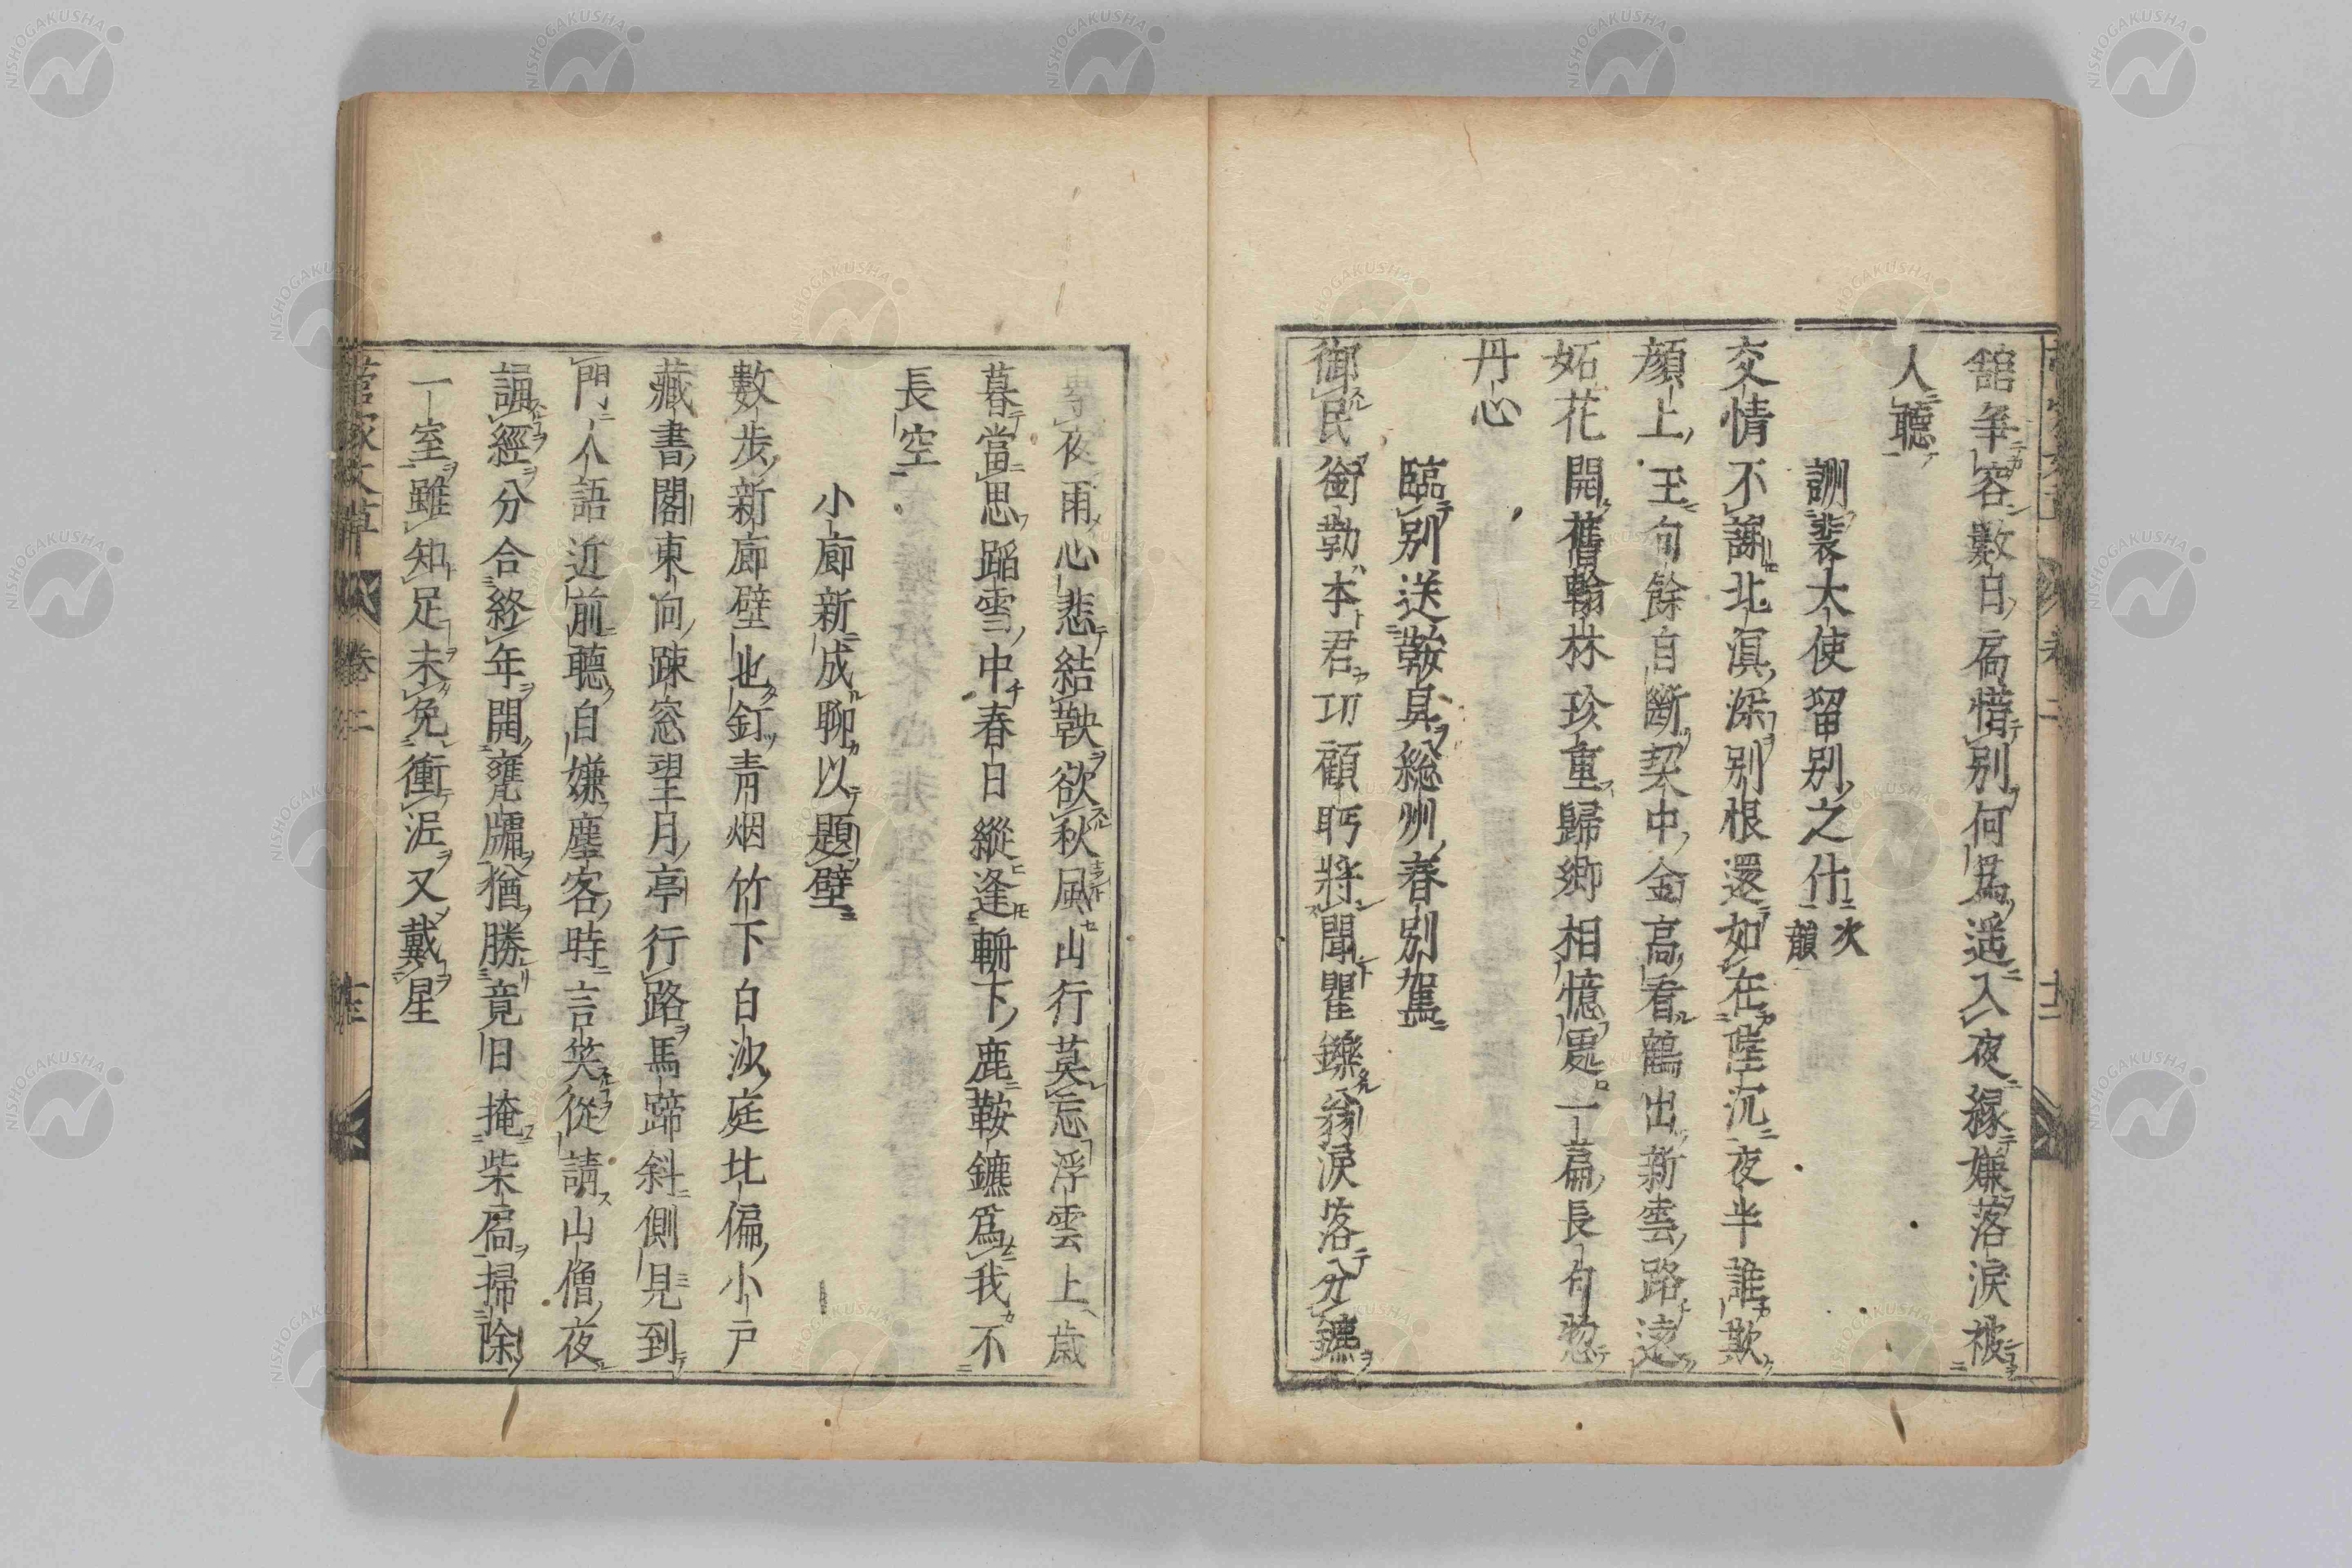 舘年客數日局惜別何爲遥入夜縁嫌落淚被
人聽
詶裴大使留別之什次韻
交情不謝北溟深別恨還如在陸沉夜半誰欺
顔上玉旬餘自斷契中金高看鶴出新雲路遠
妬花開舊翰林珍重歸鄕相憶處一篇長句惣
丹心
臨別送鞍具総州春別駕
御民銜勒本君功顧眄將聞矍鑠翁淚落分鑣
夜雨心悲結鞅欲秋風山行莫忘浮雲上歳
暮當思蹈雪中春日縱逢軒下鹿鞍鑣爲我不
長空
小廊新成聊以題壁
數步新廊壁也釘青烟竹下白沙庭北偏小戸
藏書閣東向疎窓望月亭行路馬蹄斜側見到
門人語近前聽自嫌塵客時言笑從請山僧夜
誦經分合終年開甕牖猶勝竟日掩柴扃掃除
一室雖知足未免衝泥又戴星
菅家文草 卷二
NISHOGAKUSHA